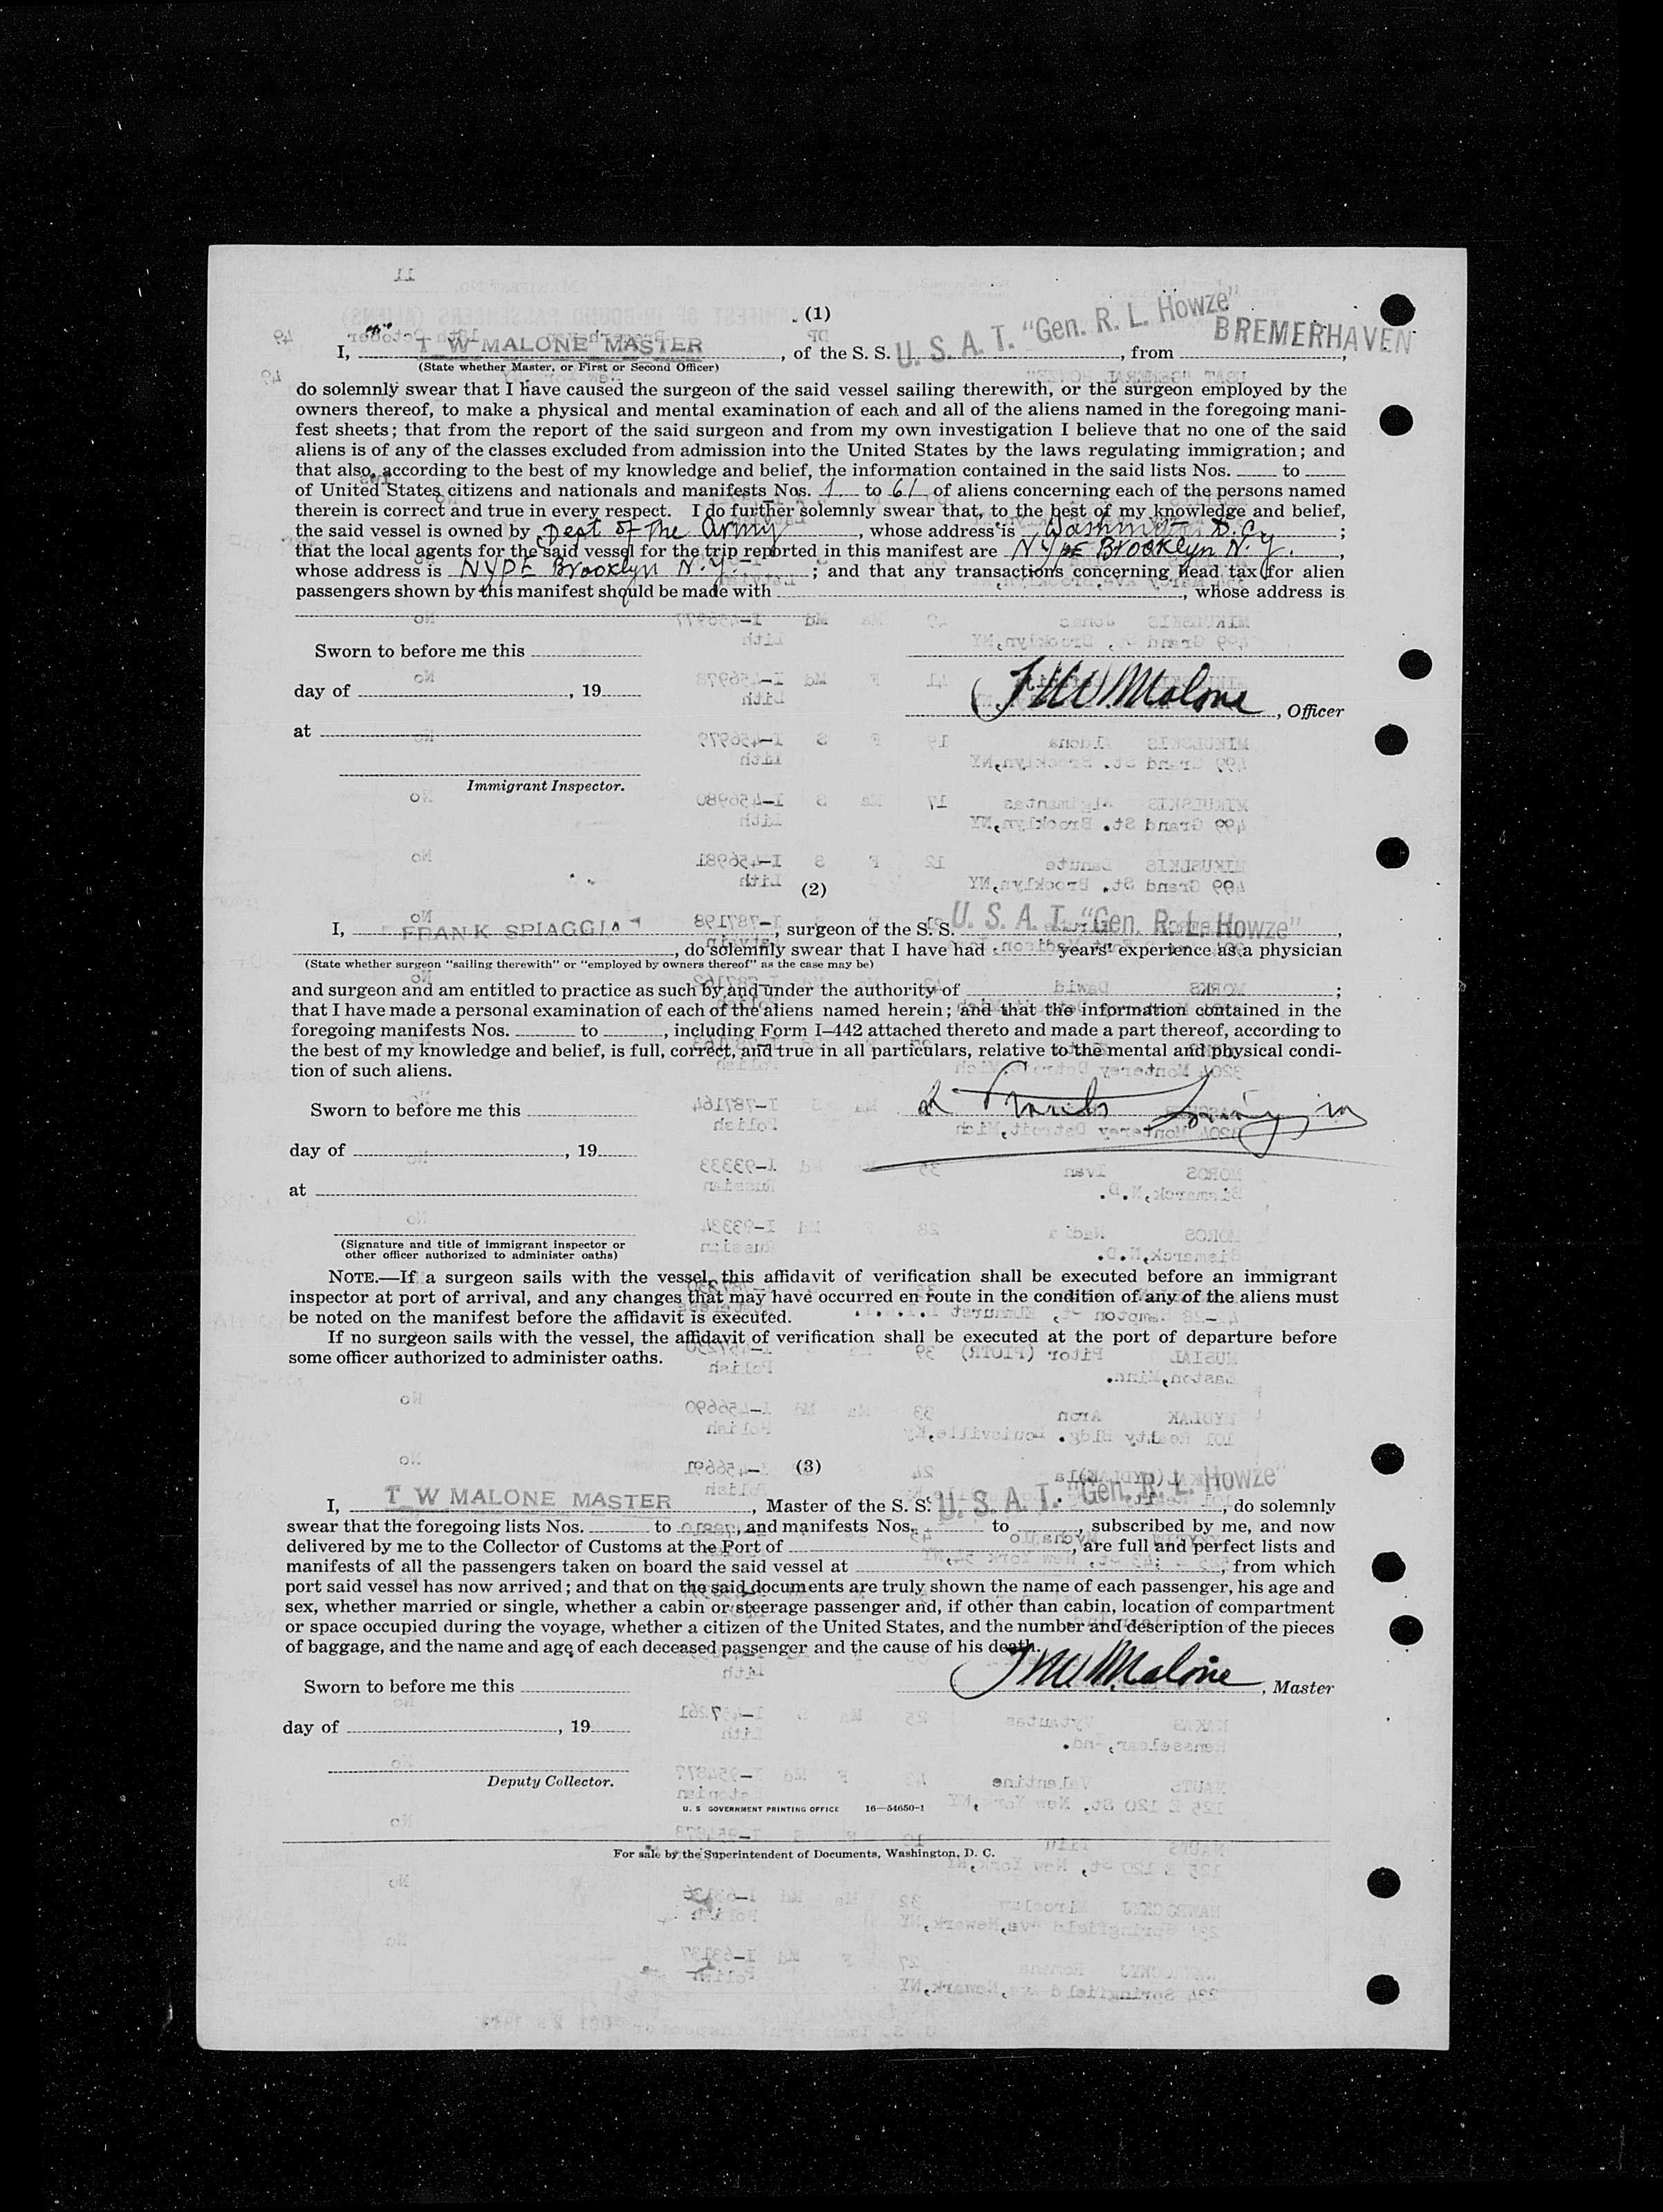 (1)
I, T W MALONE MASTER, of the S. S. U. S. A. T. "Gen. R. L. Howze", from BREMERHAVEN,
(State whether Master, or First or Second Officer)
do solemnly swear that I have caused the surgeon of the said vessel sailing therewith, or the surgeon employed by the
owners thereof, to make a physical and mental examination of each and all of the aliens named in the foregoing mani-
fest sheets; that from the report of the said surgeon and from my own investigation I believe that no one of the said
aliens is of any of the classes excluded from admission into the United States by the laws regulating immigration; and
that also, according to the best of my knowledge and belief, the information contained in the said lists Nos. ____ to ____
of United States citizens and nationals and manifests Nos. 1 to 61 of aliens concerning each of the persons named
therein is correct and true in every respect. I do further solemnly swear that, to the best of my knowledge and belief,
the said vessel is owned by Dept of The Army, whose address is Washington D.C.;
that the local agents for the said vessel for the trip reported in this manifest are NYPE Brooklyn N.Y.,
whose address is NYPE Brooklyn N.Y.; and that any transactions concerning head tax for alien
passengers shown by this manifest should be made with ____, whose address is
Sworn to before me this
day of ____, 19
T W Malone, Officer
at
Immigrant Inspector.
(2)
I, FRANK SPIAGGIA, surgeon of the S. S. U. S. A. T. "Gen. R. L. Howze",
____, do solemnly swear that I have had ____ years' experience as a physician
(State whether surgeon "sailing therewith" or "employed by owners thereof" as the case may be)
and surgeon and am entitled to practice as such by and under the authority of ____;
that I have made a personal examination of each of the aliens named herein; and that the information contained in the
foregoing manifests Nos. ____ to ____, including Form I–442 attached thereto and made a part thereof, according to
the best of my knowledge and belief, is full, correct, and true in all particulars, relative to the mental and physical condi-
tion of such aliens.
Sworn to before me this
day of ____, 19
at
(Signature and title of immigrant inspector or
other officer authorized to administer oaths)
NOTE.—If a surgeon sails with the vessel, this affidavit of verification shall be executed before an immigrant
inspector at port of arrival, and any changes that may have occurred en route in the condition of any of the aliens must
be noted on the manifest before the affidavit is executed.
If no surgeon sails with the vessel, the affidavit of verification shall be executed at the port of departure before
some officer authorized to administer oaths.
(3)
I, T W MALONE MASTER, Master of the S. S. U. S. A. T. "Gen. R. L. Howze", do solemnly
swear that the foregoing lists Nos. ____ to ____, and manifests Nos. ____ to ____, subscribed by me, and now
delivered by me to the Collector of Customs at the Port of ____, are full and perfect lists and
manifests of all the passengers taken on board the said vessel at ____, from which
port said vessel has now arrived; and that on the said documents are truly shown the name of each passenger, his age and
sex, whether married or single, whether a cabin or steerage passenger and, if other than cabin, location of compartment
or space occupied during the voyage, whether a citizen of the United States, and the number and description of the pieces
of baggage, and the name and age of each deceased passenger and the cause of his death.
Sworn to before me this
T W Malone, Master
day of ____, 19
Deputy Collector.
U. S. GOVERNMENT PRINTING OFFICE 16—54650-1
For sale by the Superintendent of Documents, Washington, D. C.